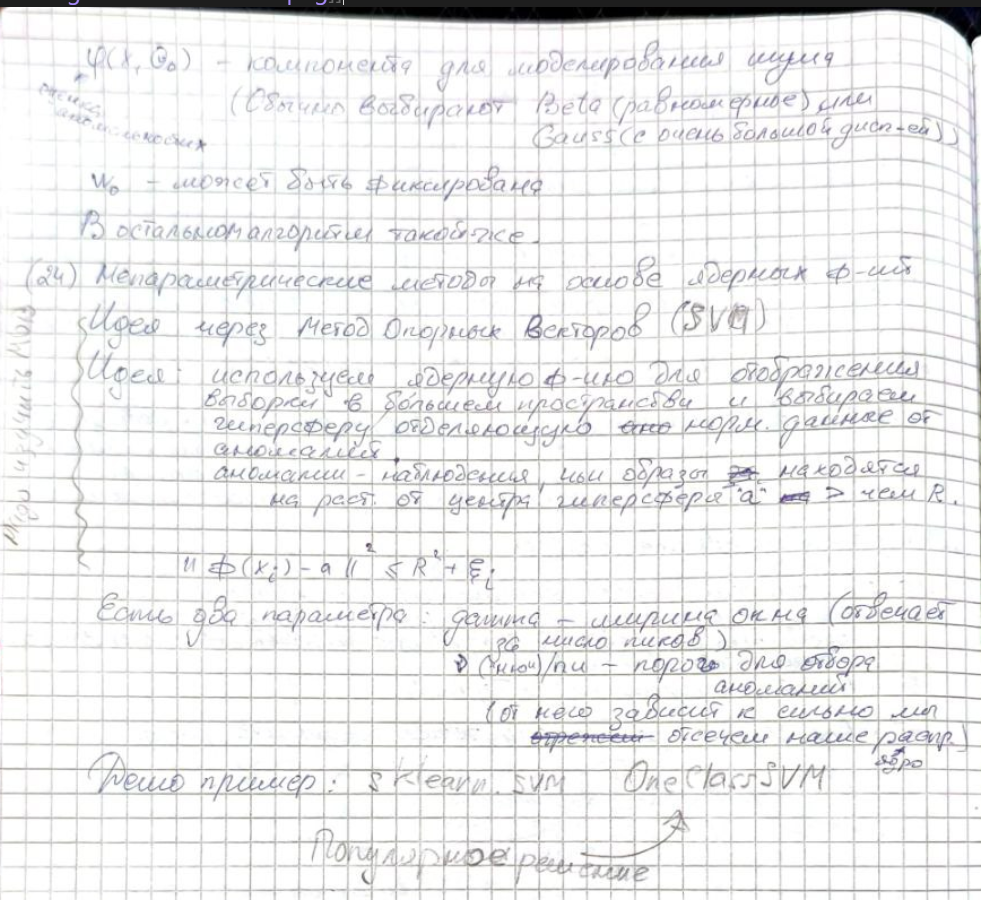 φ(x, Θ₀) - компонента для моделирования шума
оценка
аномальности
(Обычно выбирают Beta (равномерное) или
Gauss (с очень большой дисп-ей))
w₀ - может быть фиксирована
В остальном алгоритм такой же.
(24) Непараметрические методы на основе ядерных ф-ий
Идея через Метод Опорных Векторов (SVM)
Надо изучить
Идея: используем ядерную ф-ию для отображения
выборки в большем пространстви и выбираем
гиперсферу, отделяющую норм. данные от
аномалий.
аномалии - наблюдения, чьи образы находятся
на раст. от центра гиперсферы "a" > чем R.
|| Ф(xᵢ) - a ||² ≤ R² + ξᵢ
Есть два параметра: гамма - ширина окна (отвечает
за число пиков)
ν ("ню")/nu - порог для отбора
аномалий
(от него зависит к сильно мы
отсечем наше распр.)
ядро
Демо пример: sklearn.svm OneClassSVM
Популярное решение